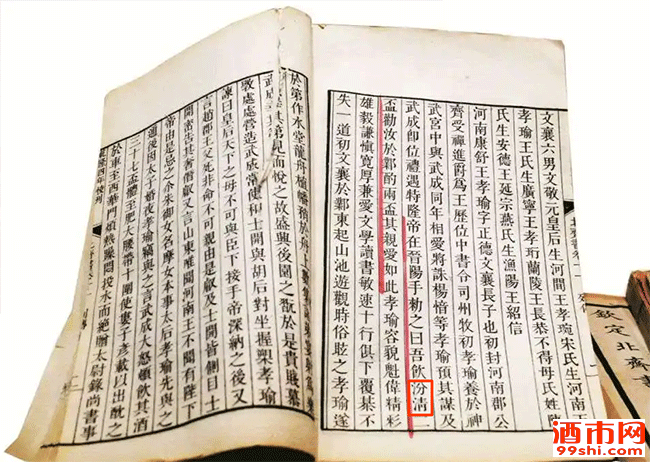 文襄六男文敬元皇后生河間王孝琬宋氏生河南王
孝瑜王氏生廣寧王孝珩蘭陵王長恭不得母氏姓陳
氏生安德王延宗燕氏生漁陽王紹信
河南康舒王孝瑜字正德文襄長子也初封河南郡公
齊受禪進爵爲王歷位中書令司州牧初孝瑜養於神
武宮中與武成同年相愛將誅楊愔等孝瑜預其謀及
武成即位禮遇特隆帝在晉陽手勅之曰吾飲汾清二
盃勸汝於鄴酌兩盃其親愛如此孝瑜容貌魁偉精彩
雄毅謙愼寬厚兼愛文學讀書敏速十行俱下覆棊不
失一道初文襄於鄴東起山池遊觀時俗眩之孝瑜遂
於第作水堂龍舟植幡矟於舟上數集諸弟宴射爲樂
武成幸其第見而悅之故盛興後園之翫於是貴賤慕
斆處處營造武成常使和士開與胡后對坐握槊孝瑜
諫曰皇后天下之母不可與臣下接手帝深納之後又
言趙郡王父死非命不可親由是叡及士開皆側目士
開密告其奢僭叡又言山東唯聞河南王不聞有陛下
帝由是忌之尒朱御女名摩女本事太后孝瑜先與之
通後因太子婚夜孝瑜竊與之言武成大怒頓飲其酒
三十七盃體至肥大腰帶十圍使婁子彥載以出酖之
於車至西華門煩熱躁悶投水而絕贈太尉錄尚書事
欽定北齊書
酒市网
99shi.com